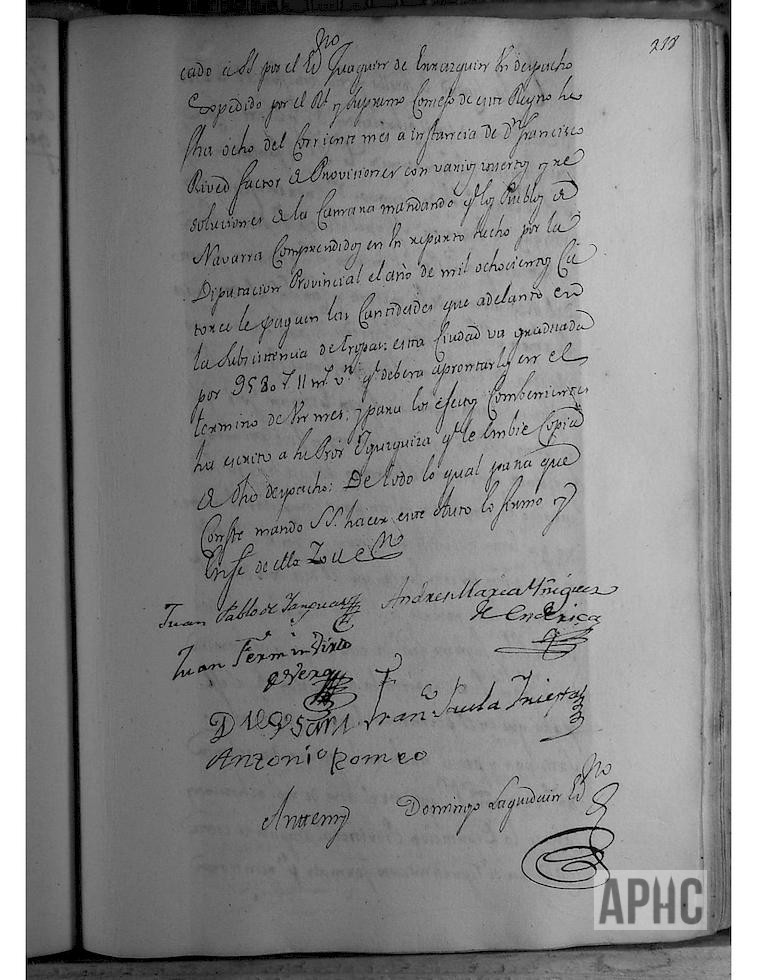 218
cado a SS. por el Essno Juaquin de Enrazquin Un despacho
Expedido por el Rl. y Supremo Consejo de este Reyno su
fha ocho del Corriente mes a instancia de Dn. Francisco
Rived factor de Provisiones con varios insertos y re
soluciones de la Camara mandando qe. los Pueblos de
Navarra Comprendidos en Un reparto hecho por la
Diputacion Provincial el año de mil ochocientos Ca
torce le paguen las Cantidades que adelantó en
la Subsistencia de tropas: esta Ciudad va graduada
por 9580 711 mrs. vn. qe. debera aprontarlos en el
termino de Un mes; y para los efectos Combenientes
ha escrito a su Pror. qe. le Embie Copia
de dho despacho: De todo lo qual para que
Conste mando SS. hacer este Auto lo firmo y
En fe de ello Yo el Essno
Juan Pablo de Andres Maria Yñiguez
Juan Fermin
de Vera
Fran.co Paula Yriesta
Antonio Romeo
Anttemy Domingo Lagüiduin Essno
APHC